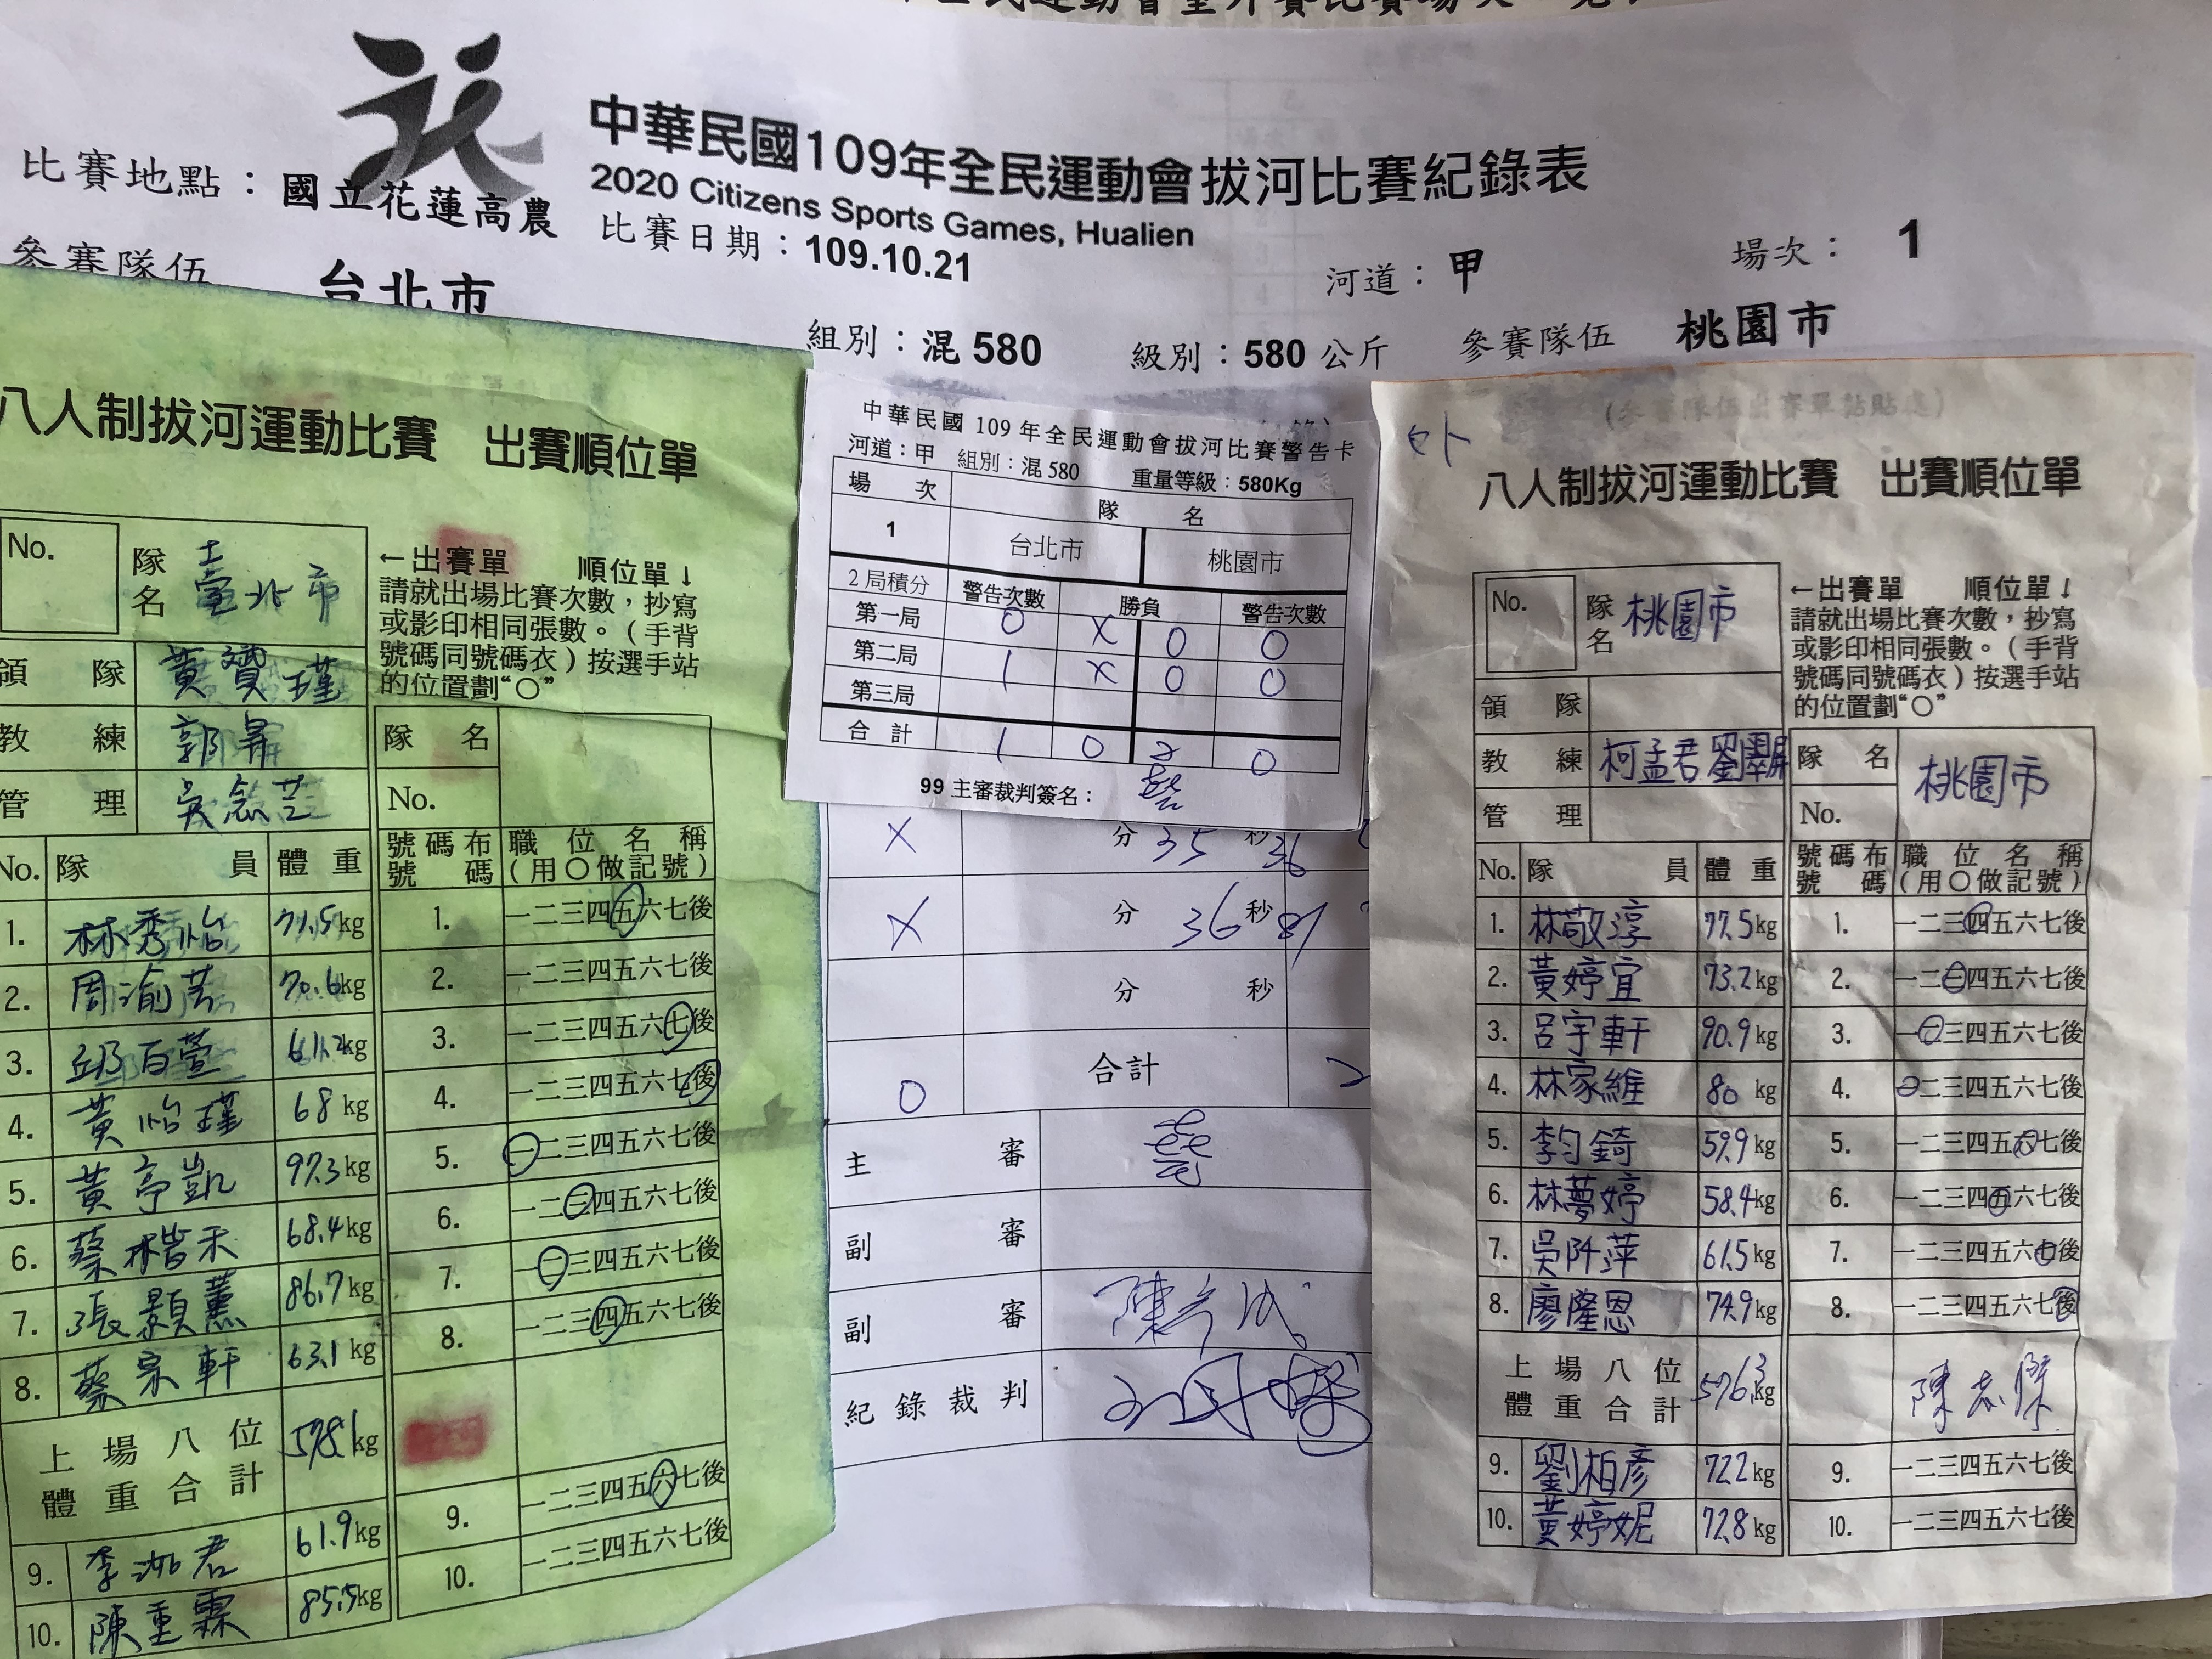 中華民國109年全民運動會拔河比賽紀錄表
2020 Citizens Sports Games, Hualien
比賽地點：國立花蓮高農
比賽日期：109.10.21
河道：甲
場次：1
參賽隊伍 台北市
組別：混580
級別：580公斤
參賽隊伍 桃園市
八人制拔河運動比賽 出賽順位單
No.
隊名 臺北市
←出賽單 順位單↓
請就出場比賽次數，抄寫
或影印相同張數。(手背
號碼同號碼衣)按選手站
的位置劃“○”
領隊
教練 郭昇
管理 吳念芸
隊名
No.
No. 隊員 體重
號碼布號碼 職位名稱(用○做記號)
1. 林秀怡 71.5kg 1. 一二三四五六七後
2. 70.6kg 2. 一二三四五六七後
3. 邱百萱 61.2kg 3. 一二三四五六七後
4. 黃怡瑾 68kg 4. 一二三四五六七後
5. 黃亭凱 97.3kg 5. 一二三四五六七後
6. 蔡楷禾 68.4kg 6. 一二三四五六七後
7. 張顥薰 86.7kg 7. 一二三四五六七後
8. 蔡宗軒 63.1kg 8. 一二三四五六七後
上場八位體重合計 578.1kg
9. 61.9kg 9. 一二三四五六七後
10. 陳重霖 85.5kg 10. 一二三四五六七後
中華民國 109 年全民運動會拔河比賽警告卡
河道：甲 組別：混580 重量等級：580Kg
場次 隊名
1 台北市 桃園市
2局積分 警告次數 勝負 警告次數
第一局 0 X 0 0
第二局 1 X 0 0
第三局
合計 1 0 2 0
99 主審裁判簽名：
X 分 35 秒 36
X 分 36 秒 81
分 秒
0 合計 2
主審
副審
副審
紀錄裁判
八人制拔河運動比賽 出賽順位單
No.
隊名 桃園市
←出賽單 順位單↓
請就出場比賽次數，抄寫
或影印相同張數。(手背
號碼同號碼衣)按選手站
的位置劃“○”
領隊
教練 柯孟君 劉翠屏
管理
隊名 桃園市
No.
No. 隊員 體重
號碼布號碼 職位名稱(用○做記號)
1. 林敬淳 77.5kg 1. 一二三四五六七後
2. 黃婷宜 73.2kg 2. 一二三四五六七後
3. 呂宇軒 90.9kg 3. 一二三四五六七後
4. 林家維 80 kg 4. 一二三四五六七後
5. 李均錡 59.9kg 5. 一二三四五六七後
6. 林夢婷 58.4kg 6. 一二三四五六七後
7. 吳阡萍 61.5kg 7. 一二三四五六七後
8. 廖隆恩 74.9kg 8. 一二三四五六七後
上場八位體重合計 576.3kg 陳志傑
9. 劉柏彥 72.2kg 9. 一二三四五六七後
10. 黃婷妮 72.8kg 10. 一二三四五六七後